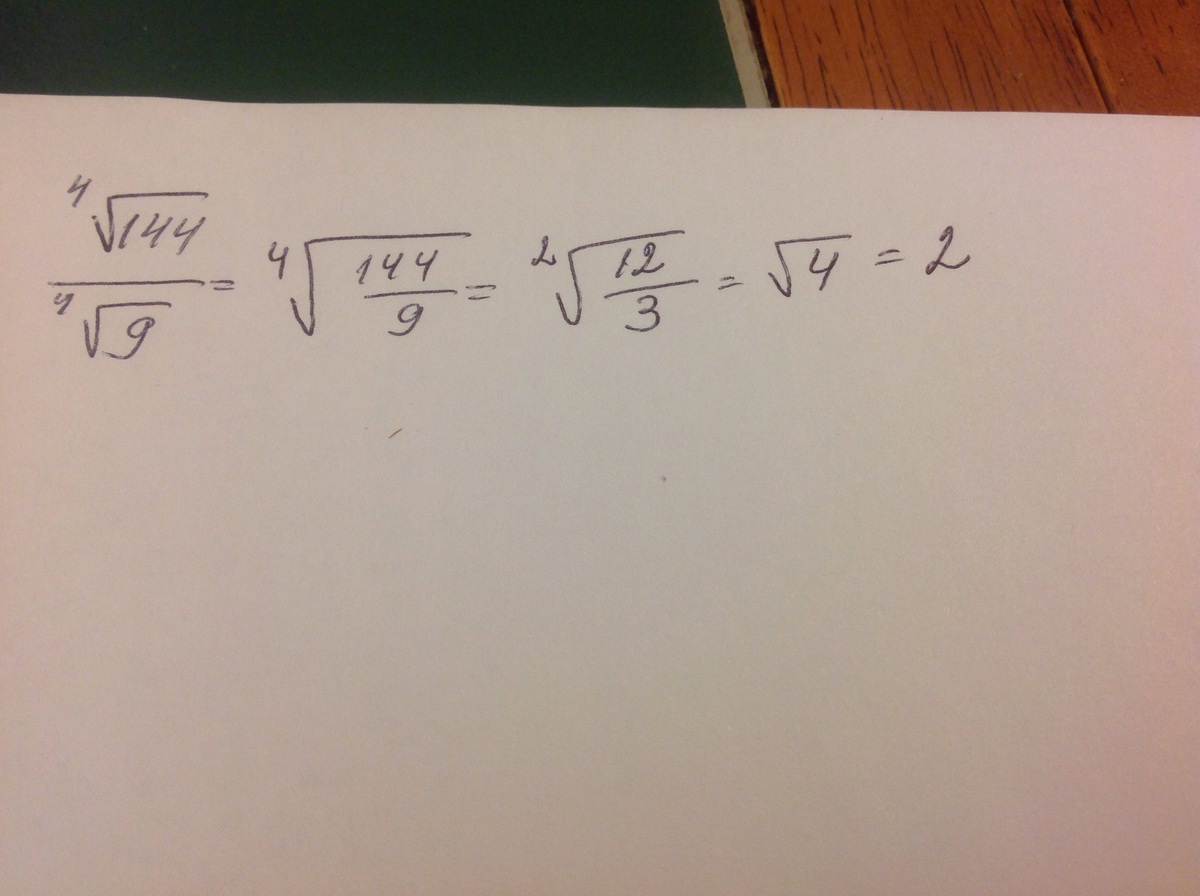 $\frac{\sqrt[4]{144}}{\sqrt[4]{9}} = \sqrt[4]{\frac{144}{9}} = \sqrt[2]{\frac{12}{3}} = \sqrt{4} = 2$